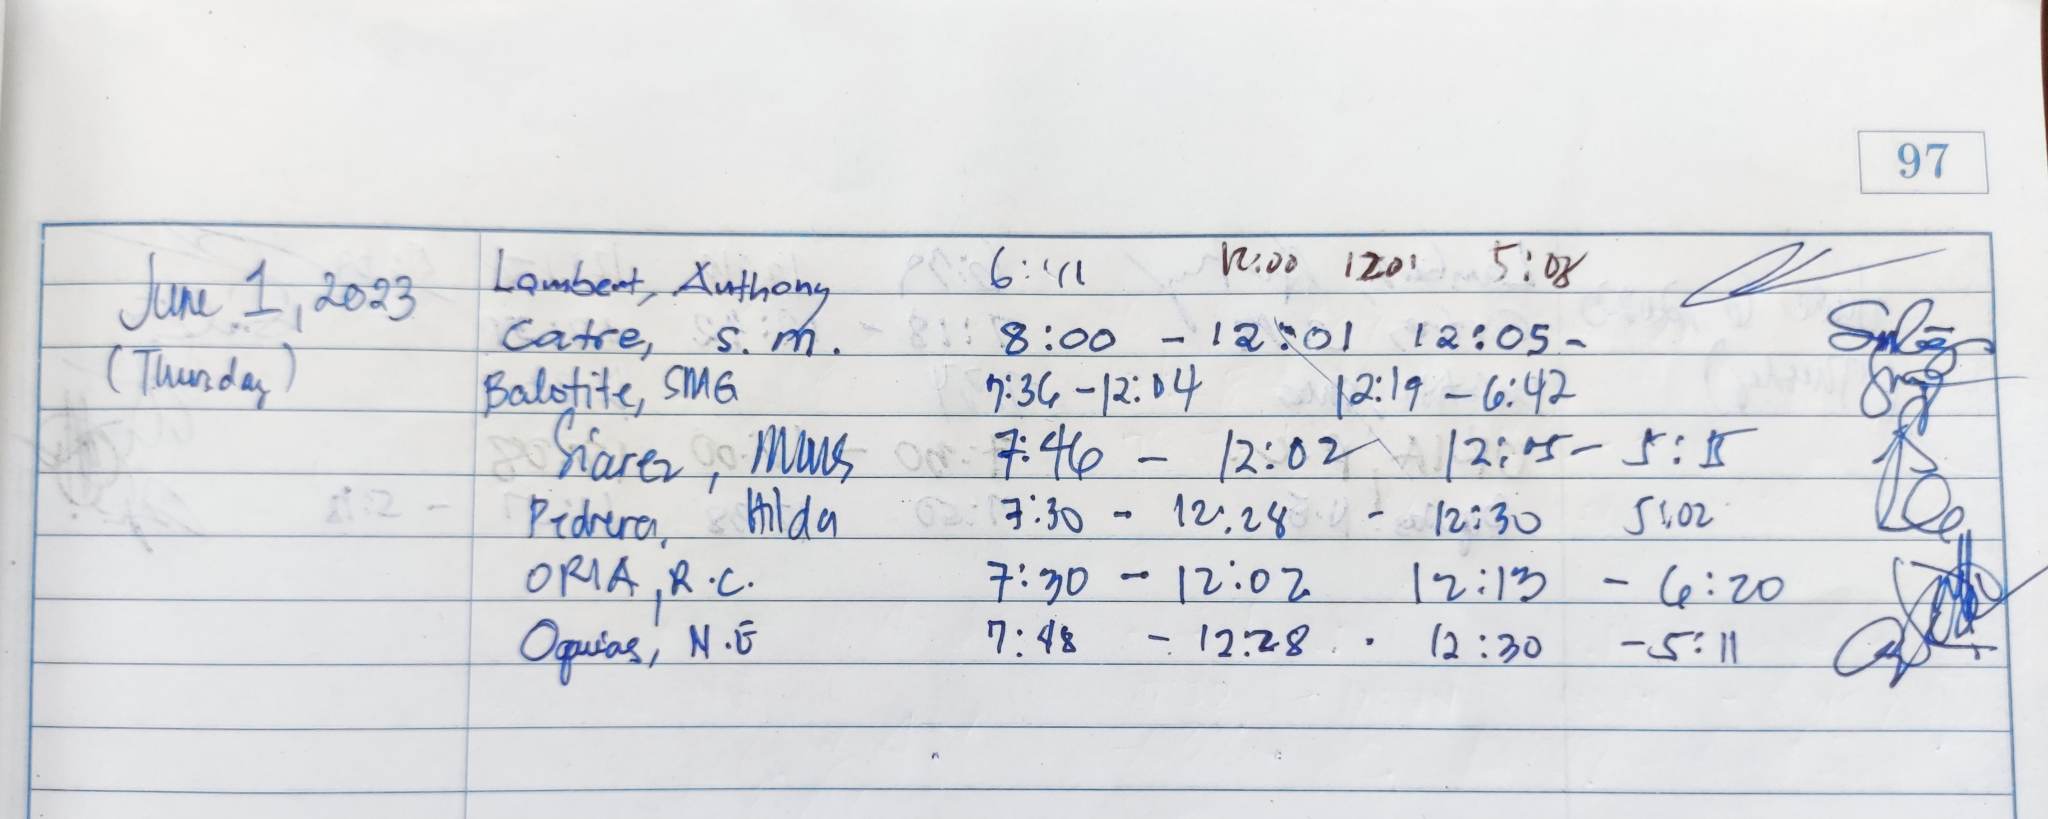 97
June 1, 2023
(Thursday)
Lambert, Anthony 6:41 12:00 1201 5:08
Catre, S.M. 8:00 - 12:01 12:05 -
Balotite, SMG 7:36 - 12:04 12:19 - 6:42
Suarez, 7:46 - 12:02 12:05 - 5:15
Pedrera, Hilda 7:30 - 12:28 - 12:30 5:02
ORIA, R.C. 7:30 - 12:02 12:13 - 6:20
Oquias, N.E 7:48 - 12:28 . 12:30 - 5:11